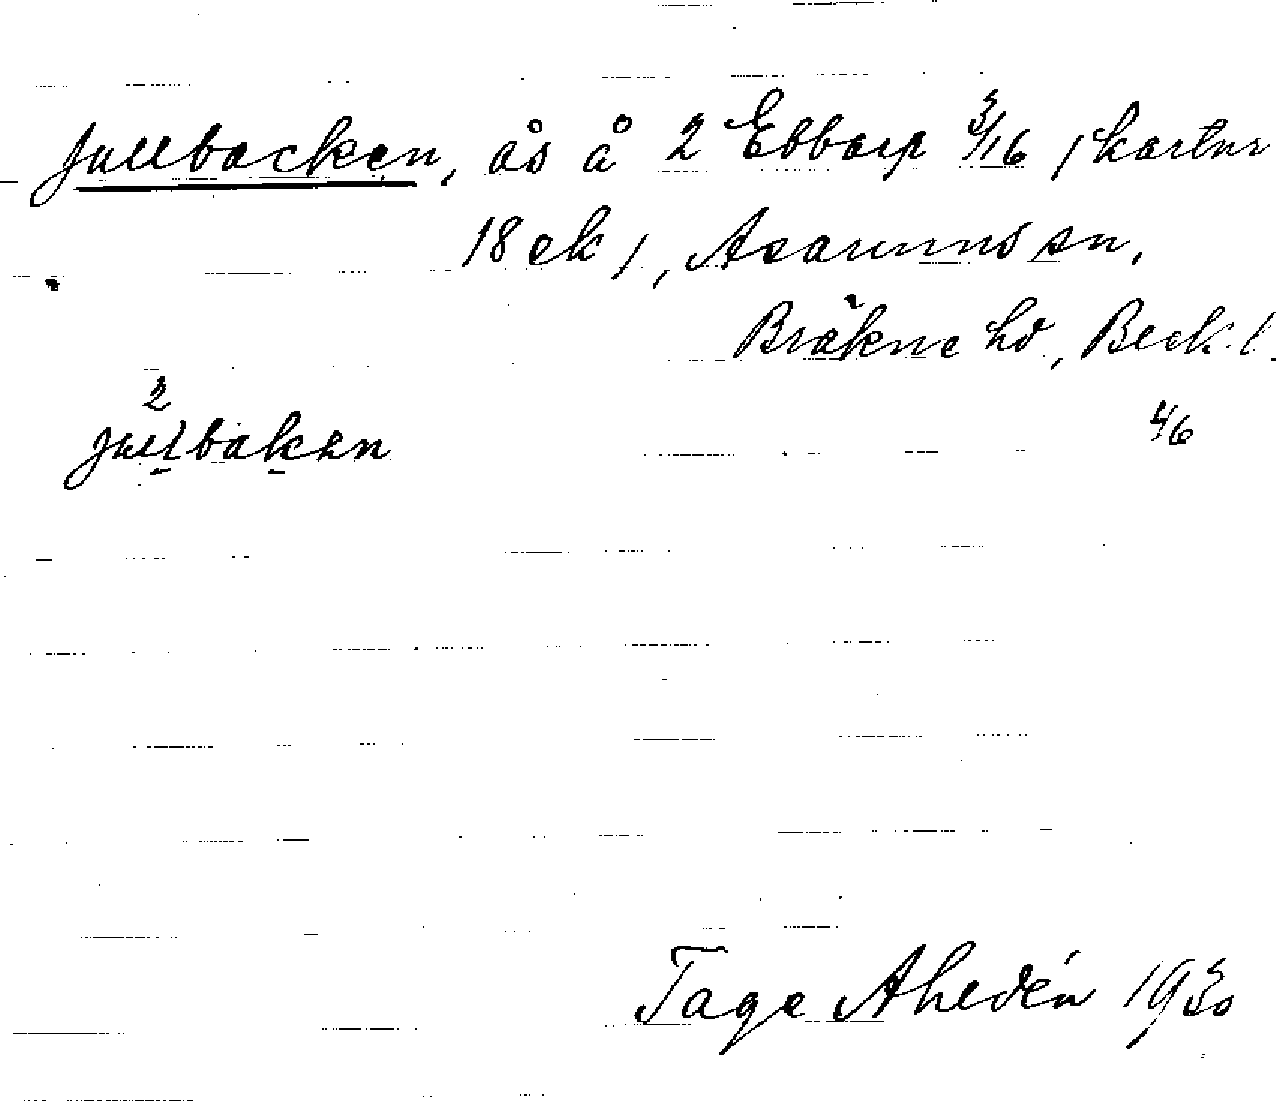 Jullbacken, ås å 2 Ebbarp 3/16 (kartnr
18 ek), Asarums sn,
Bräkne hd, Blek. l.
2
jullbakan 4/6
Tage Ahldén 1930